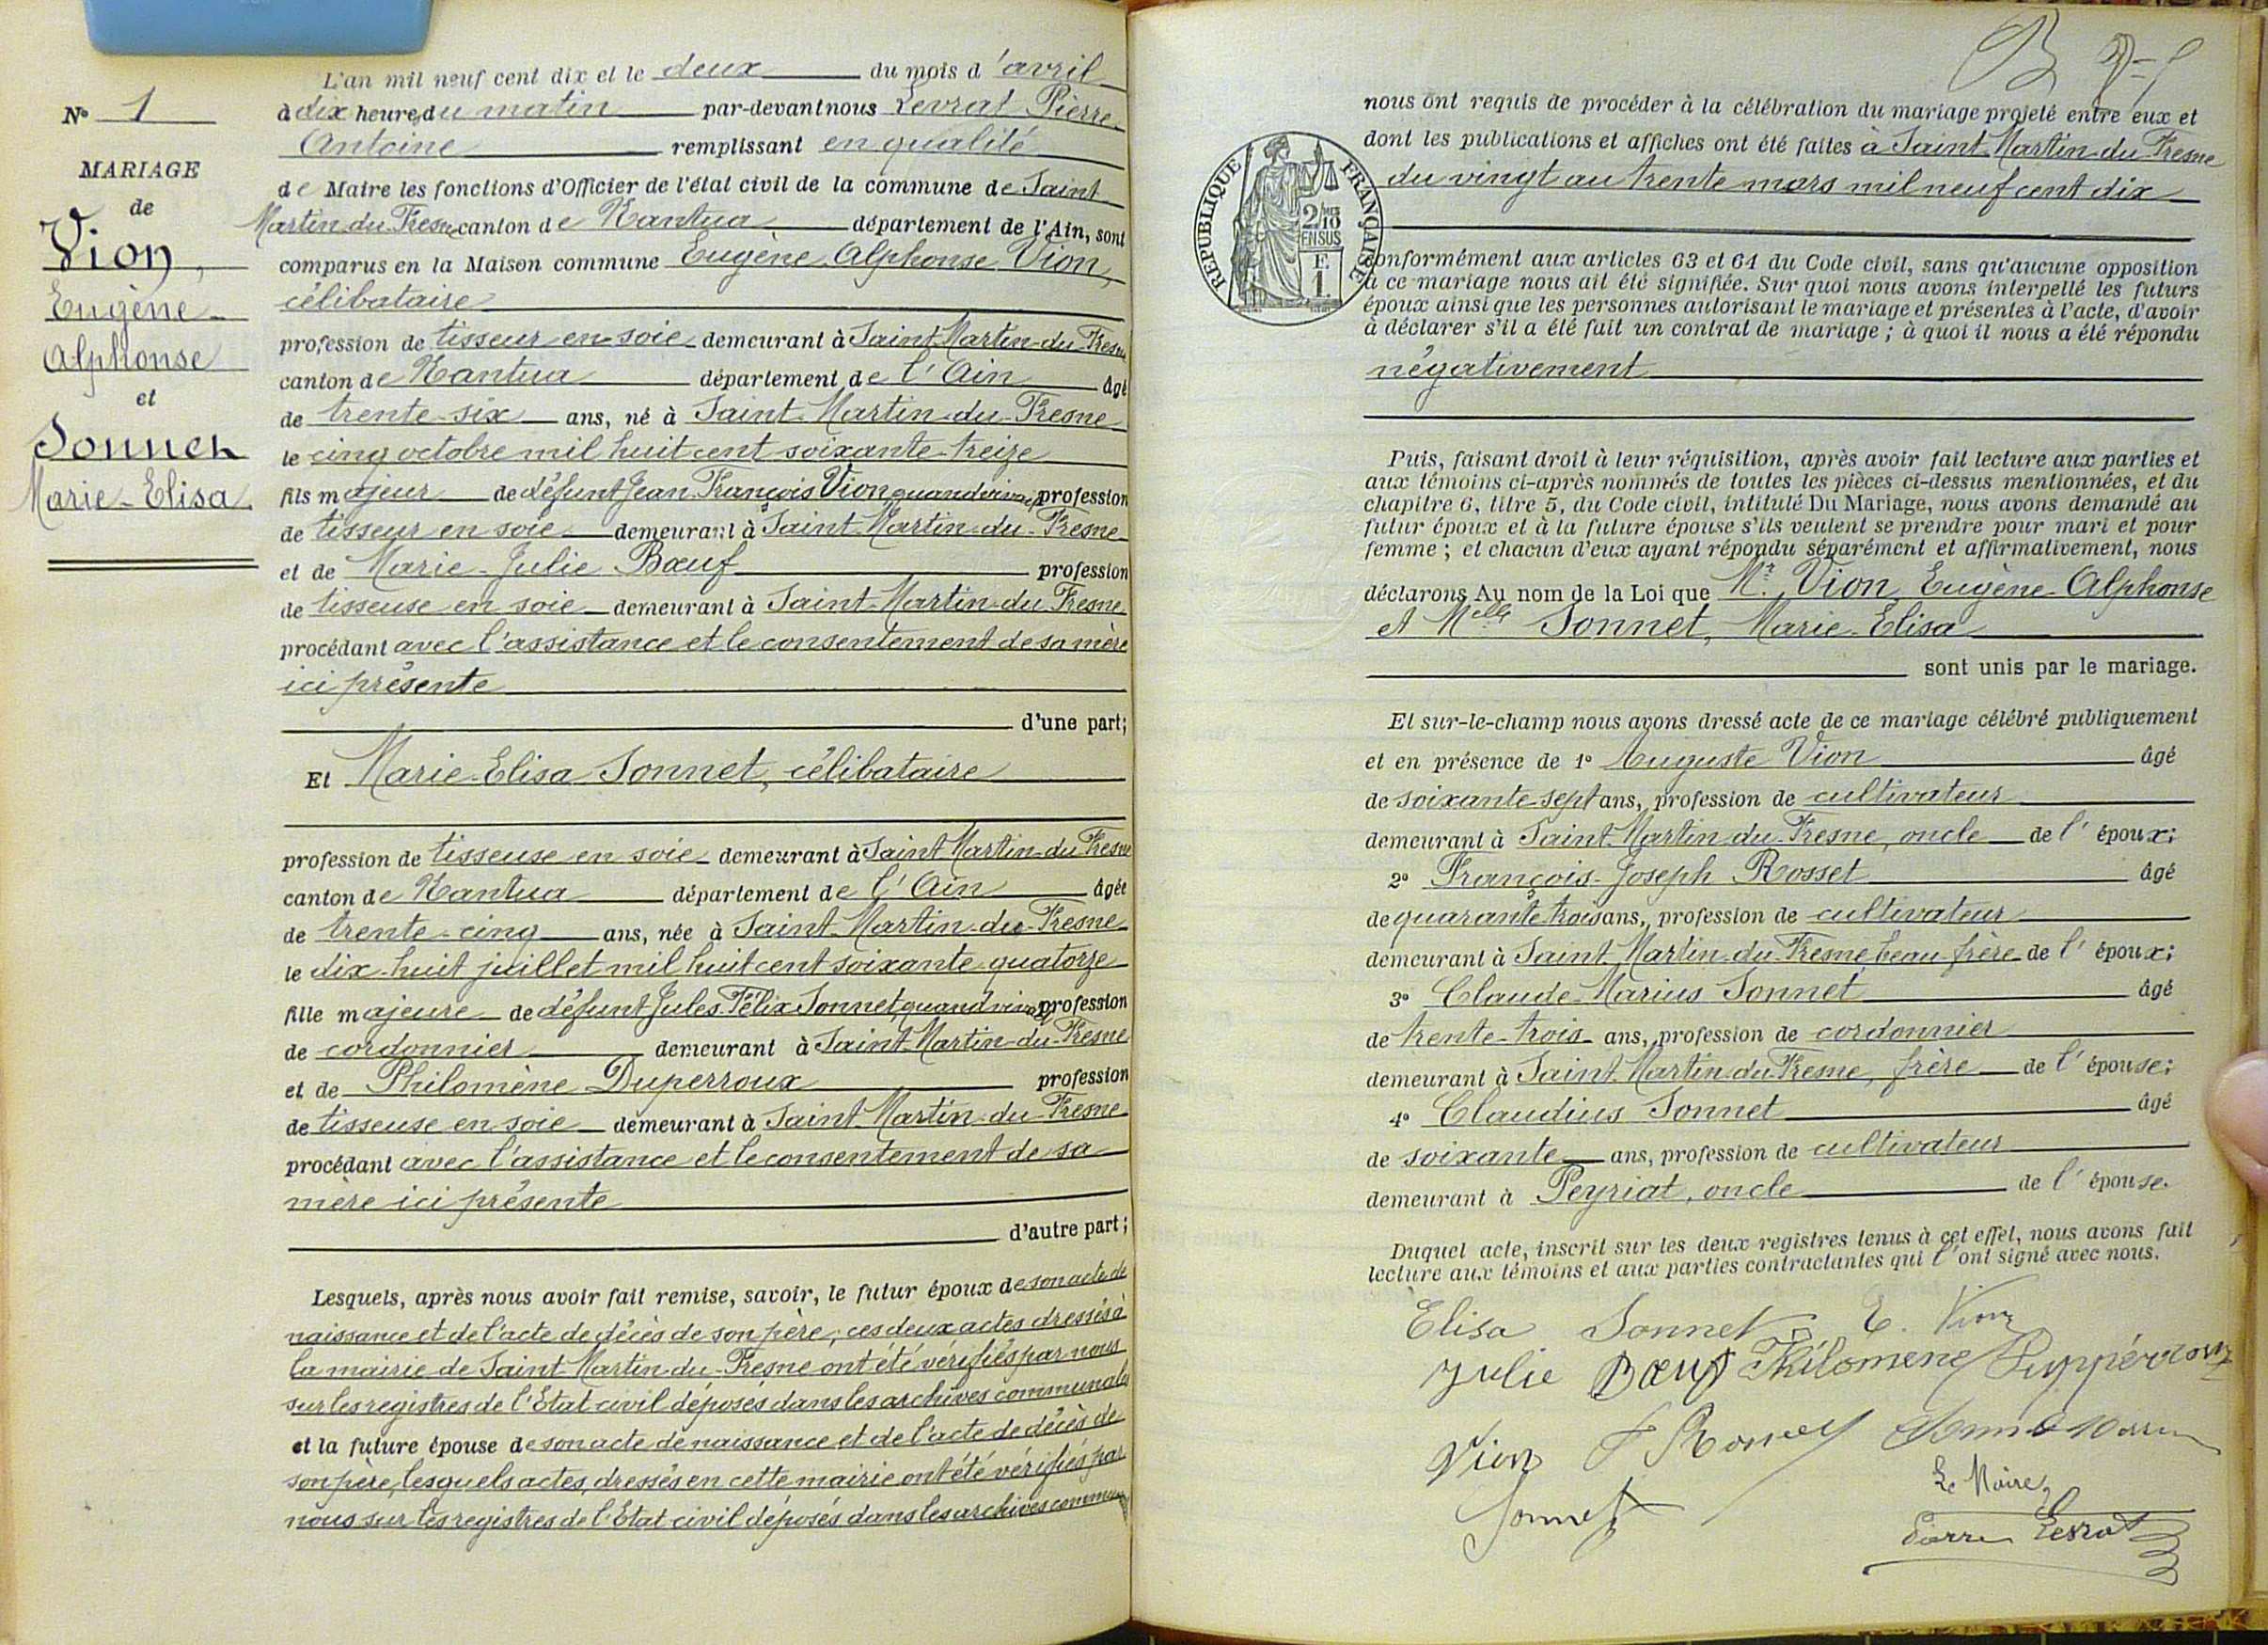 N° 1
MARIAGE
de
Vion,
Eugène
Alphonse
et
Sonnet
Marie-Elisa
L'an mil neuf cent dix et le deux du mois d'avril
à dix heures du matin par-devant nous Levrat Pierre-
Antoine remplissant en qualité
de Maire les fonctions d'Officier de l'état civil de la commune de Saint
Martin-du-Fresne canton de Nantua département de l'Ain, sont
comparus en la Maison commune Eugène Alphonse Vion,
célibataire
profession de tisseur en soie demeurant à Saint-Martin-du-Fresne
canton de Nantua département de l'Ain âgé
de trente-six ans, né à Saint-Martin-du-Fresne
le cinq octobre mil huit cent soixante-treize
fils majeur de défunt Jean François Vion quand vivait profession
de tisseur en soie demeurant à Saint Martin-du-Fresne
et de Marie-Julie Bœuf profession
de tisseuse en soie demeurant à Saint-Martin-du-Fresne
procédant avec l'assistance et le consentement de sa mère
ici présente
d'une part;
Et Marie-Elisa Sonnet, célibataire
profession de tisseuse en soie demeurant à Saint Martin-du-Fresne
canton de Nantua département de l'Ain âgée
de trente-cinq ans, née à Saint-Martin-du-Fresne
le dix-huit juillet mil huit cent soixante-quatorze
fille majeure de défunt Jules Félix Sonnet, quand vivait profession
de cordonnier demeurant à Saint-Martin-du-Fresne
et de Philomène Duperroux profession
de tisseuse en soie demeurant à Saint Martin-du-Fresne
procédant avec l'assistance et le consentement de sa
mère ici présente
d'autre part;
Lesquels, après nous avoir fait remise, savoir, le futur époux de son acte de
naissance et de l'acte de décès de son père; ces deux actes dressés à
la mairie de Saint-Martin-du-Fresne ont été vérifiés par nous
sur les registres de l'Etat-civil déposés dans les archives communales
et la future épouse de son acte de naissance et de l'acte de décès de
son père, lesquels actes, dressés en cette mairie ont été vérifiés par
nous sur les registres de l'Etat civil déposés dans les archives
nous ont requis de procéder à la célébration du mariage projeté entre eux et
dont les publications et affiches ont été faites à Saint-Martin-du-Fresne
du vingt au trente mars mil neuf cent dix
RÉPUBLIQUE FRANÇAISE
2/10
EN SUS
F.
1.
conformément aux articles 63 et 64 du Code civil, sans qu'aucune opposition
à ce mariage nous ait été signifiée. Sur quoi nous avons interpellé les futurs
époux ainsi que les personnes autorisant le mariage et présentes à l'acte, d'avoir
à déclarer s'il a été fait un contrat de mariage; à quoi il nous a été répondu
négativement
Puis, faisant droit à leur réquisition, après avoir fait lecture aux parties et
aux témoins ci-après nommés de toutes les pièces ci-dessus mentionnées, et du
chapitre 6, titre 5, du Code civil, intitulé Du Mariage, nous avons demandé au
futur époux et à la future épouse s'ils veulent se prendre pour mari et pour
femme; et chacun d'eux ayant répondu séparément et affirmativement, nous
déclarons Au nom de la Loi que Mr. Vion, Eugène-Alphonse
et Melle Sonnet, Marie-Elisa
sont unis par le mariage.
Et sur-le-champ nous avons dressé acte de ce mariage célébré publiquement
et en présence de 1° Auguste Vion âgé
de soixante-sept ans, profession de cultivateur
demeurant à Saint-Martin-du-Fresne, oncle de l'époux;
2° François-Joseph Rosset âgé
de quarante trois ans, profession de cultivateur
demeurant à Saint Martin-du-Fresne beau-frère de l'époux;
3° Claude-Marius Sonnet âgé
de trente-trois ans, profession de cordonnier
demeurant à Saint-Martin-du-Fresne, frère de l'épouse;
4° Claudius Sonnet âgé
de soixante ans, profession de cultivateur
demeurant à Peyriat, oncle de l'épouse.
Duquel acte, inscrit sur les deux registres tenus à cet effet, nous avons fait
lecture aux témoins et aux parties contractantes qui l'ont signé avec nous.
Elisa Sonnet E. Vion
Julie Bœuf Philomene Dupperroux
Vion
Sonnet
Le Maire,
Pierre Levrat